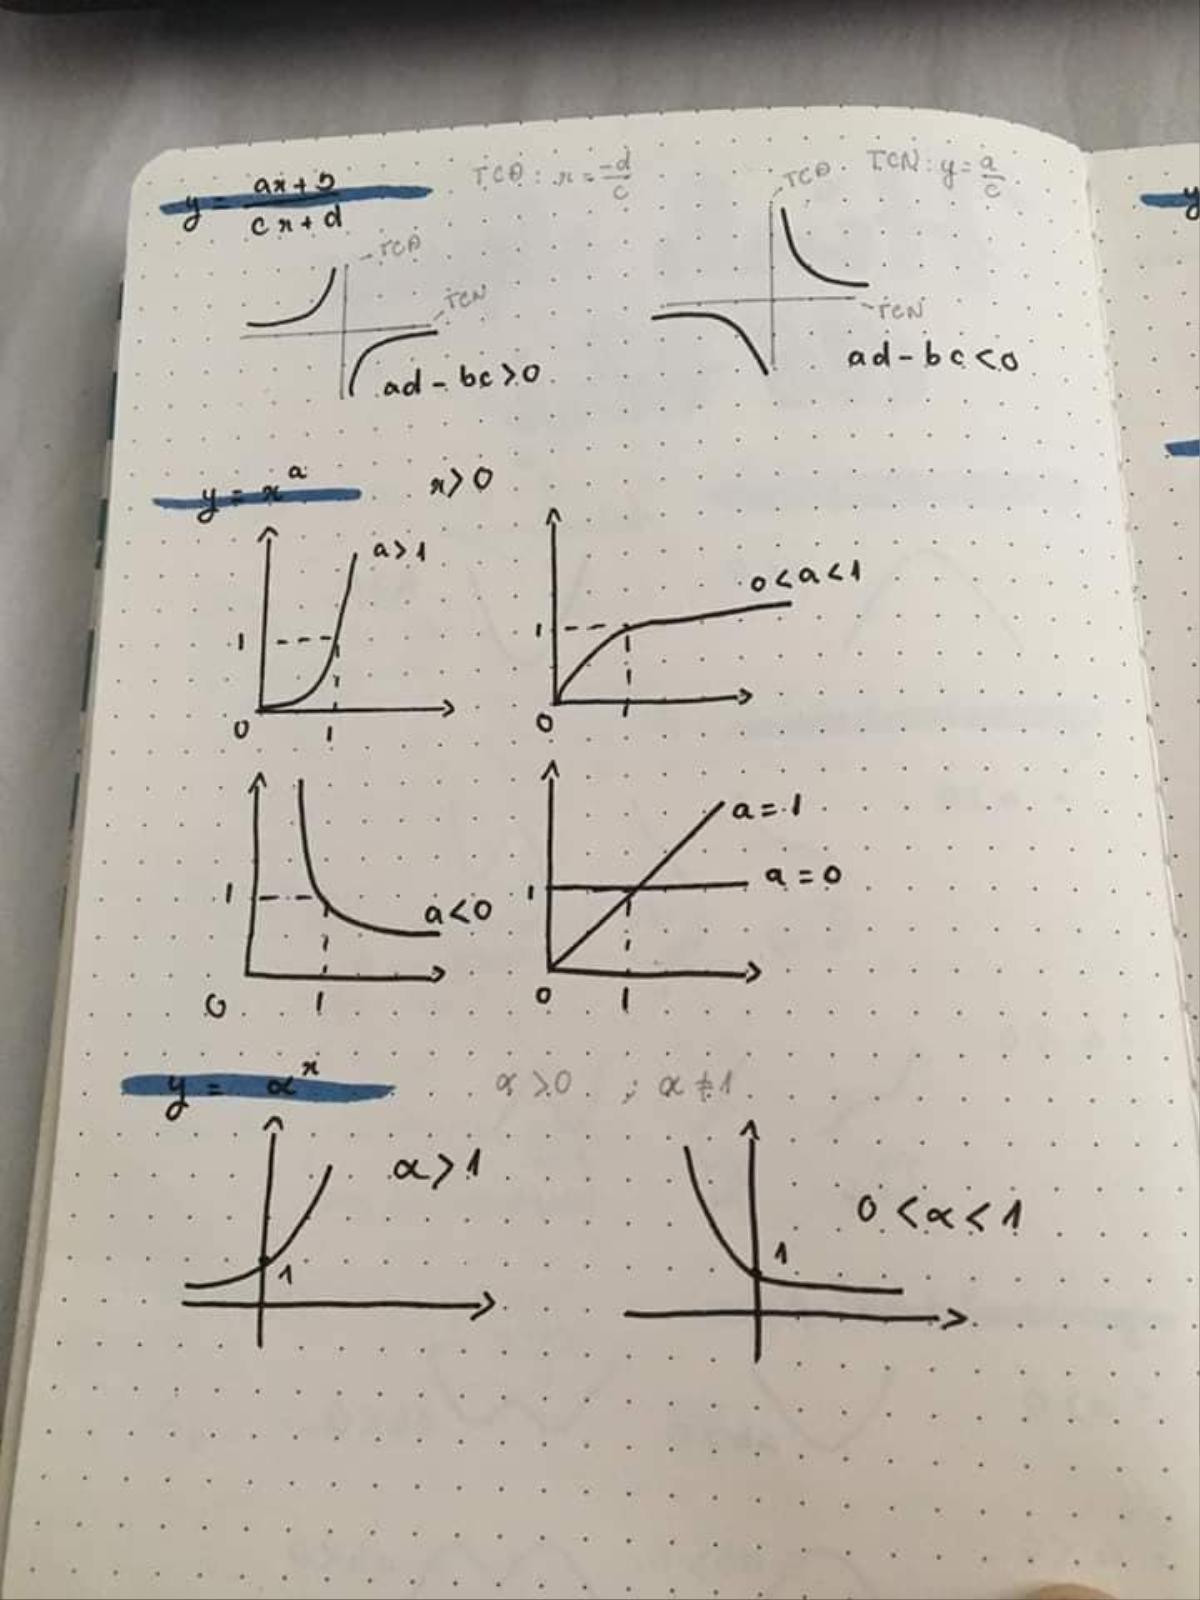 y = (ax+b)/(cx+d)
TCĐ: x = -d/c
TCĐ
TCN: y = a/c
TCĐ
TCN
TCN
ad - bc > 0
ad - bc < 0
y = x^a
x > 0
a > 1
0 < a < 1
1
1
0
1
0
1
a = 1
a = 0
1
a < 0
1
0
1
0
1
y = α^x
α > 0 ; α ≠ 1
α > 1
0 < α < 1
1
1
y